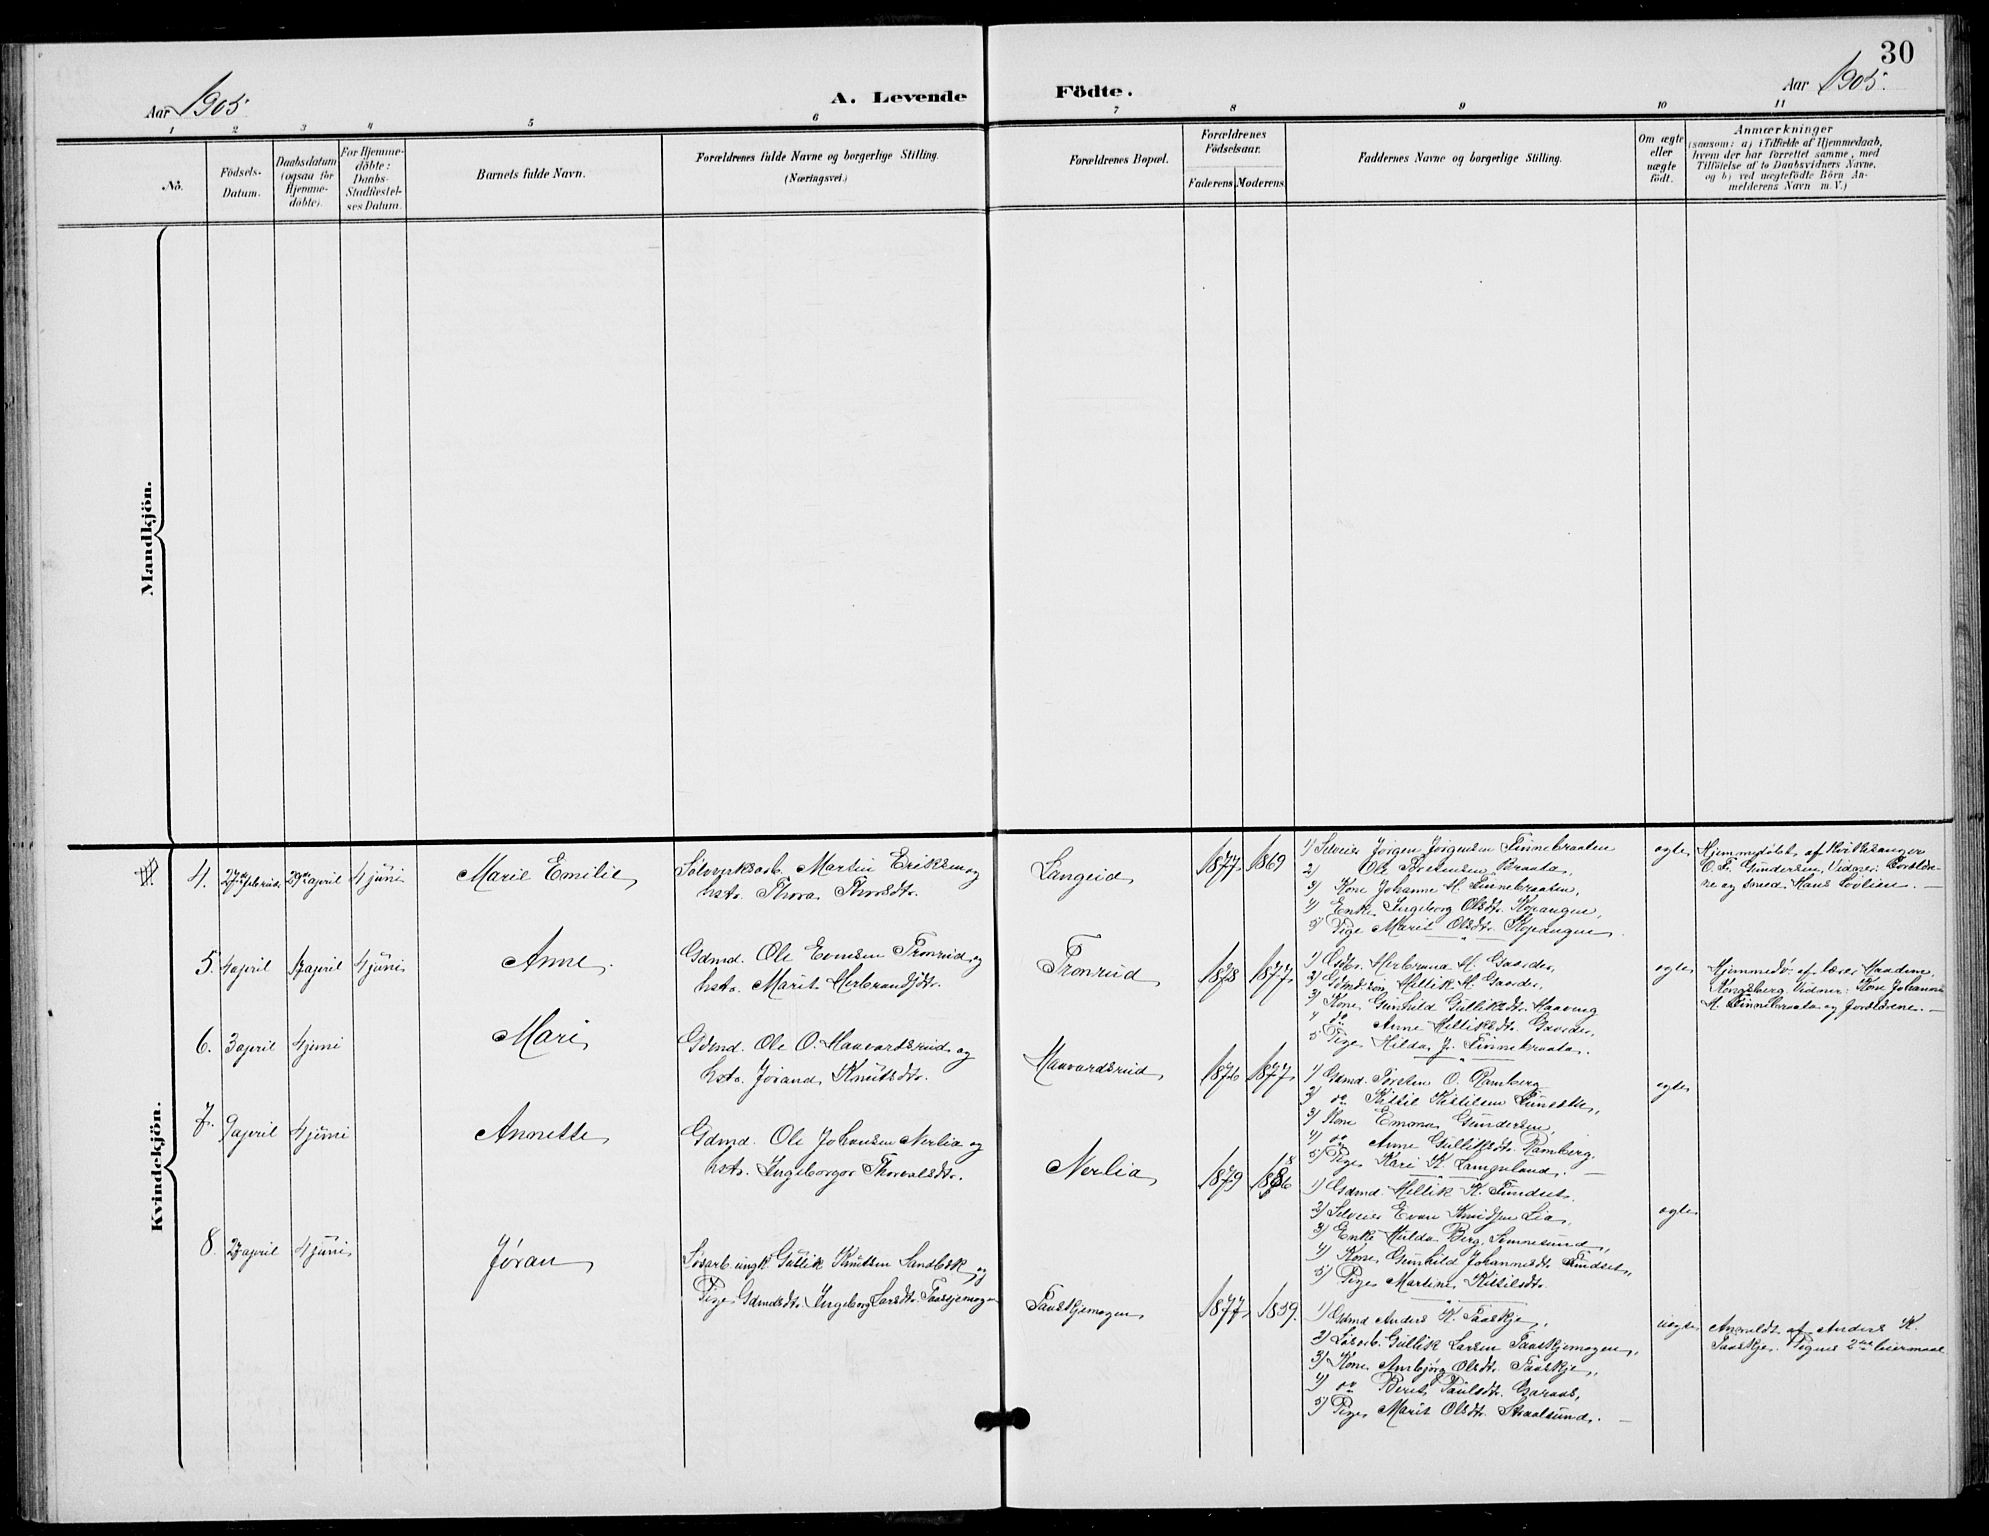 30
Aar 1905.
A. Levende Födte.
Aar 1905.
1 2 3 4 5 6 7 8 9 10 11
No.
Födsels-
Datum.
Daabsdatum
(ogsaa for
Hjemme-
döbte).
For Hjemme-
döbte:
Daabs-
Stadfæstel-
ses Datum.
Barnets fulde Navn.
Forældrenes fulde Navne og borgerlige Stilling.
(Næringsvei.)
Forældrenes Bopæl.
Forældrenes
Födselsaar.
Faderens. Moderens.
Faddernes Navne og borgerlige Stilling.
Om ægte
eller
uægte
födt.
Anmærkninger
(saasom: a) i Tilfælde af Hjemmedaab,
hvem der har forrettet samme, med
Tilföielse af to Daabsvidners Navne,
og b) ved uægtefödte Börn An-
melderens Navn m. V.)
Mandkjön.
Kvindekjön.
4. 27de februar 29de april 4 juni
Marie Emilie
Sølvverksarb. Martin Eriksen og
hst. Thora Thorsdtr.
Langeid
1877 1869
1) Selveier Jørgen Jørgensen Finnebraaten
2) Ole Torstensen Braata,
3) Kone Johanne H. Finnebraaten,
4) Enke Ingeborg Olsdtr. Kopangen,
5) Pige Marit Olsdtr. Kopangen.
ægte
Hjemmedøbt af Kirkesanger
O. F. Gundersen, Vidner: Forældre-
ne og smed Hans Lovlien.
5. 4 april 17 april 4 juni
Anne
Gdmd. Ole Evensen Tronrud og
hst. Marit Herbrandsdtr.
Tronrud
1878 1877
1) Gdbr. Herbrand H. Gaarder,
2) Gdmd. søn Hellik H. Gaarder,
3) Kone Gunhild Gulliksdtr. Haaving
4 do Anne Helliksdtr. Gaarder,
5 Pige Hilda J. Finnebraata.
ægte
Hjemmedø. af lærer Haadem,
Kongsberg. Vidner: Kone Johanne
H. Finnebraata og forældrene.
6. 3 april 4 juni
Mari
Gdmd. Ole O. Haavardsrud og
hst. Jørand Knutsdtr.
Haavardsrud
1876 1877
1) Gdmd. Torsten O. Ramberg
2) do Kittil Kittilsen
3) Kone Emma Gundersen,
4) do Anne Gulliksdtr. Ramberg,
5) Pige Kari K. Langeland.
ægte
7. 9 april 4 juni
Annette
Gdmd. Ole Johansen Nerlia og
hst. Ingeborg Thorvalsdtr.
Nerlia
1879
1) Gdmd. Hellik K. Fundset,
2) Selveier Even Knudsen Lia,
3) Enke Hulda Berg,
4) Kone Gunhild Johannesdtr. Fundset,
5) Pige Martine Kittilsdtr.
ægte
8. 27 april 4 juni
Jøran
Løsarb. ungk. Gullik Knutsen Sandbæk og
Pige Gdmdsdtr. Ingeborg Larsdtr. Taaskjemogen
Taaskjemogen
1877
1) Gdmd Anders K. Taaskje,
2) Løsarb. Gullik Larsen Taaskjemogen,
3) Kone Ambjørg Olsdtr. Taaskje,
4) do Berit Paulsdtr. Garaas,
5) Pige Marit Olsdtr. Straalsund.
uægte
Anmeldt af Anders K.
Taaskje. Pigens 2det leiermaal